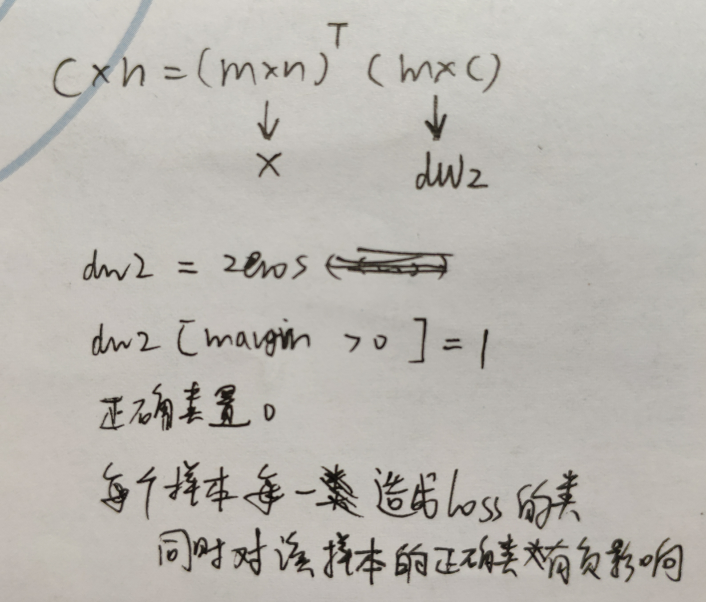 C×n = (m×n)ᵀ (m×C)
↓ ↓
X dW2
dw2 = zeros
dw2 [margin >0 ] = 1
正确类置0
每个样本每一类造成loss的类
同时对该样本的正确类有负影响